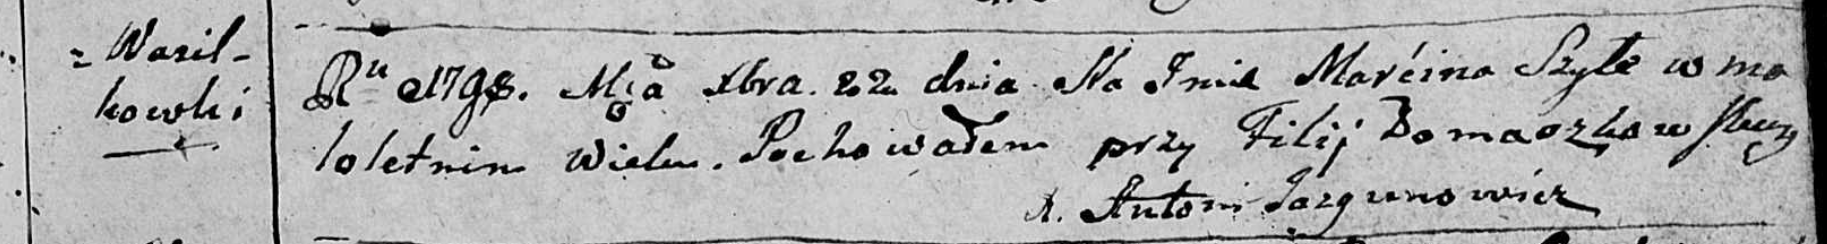 = Wasil-
kowski
Ru 1798. Mca Xbra. 22 dnia Na Imie Marcina Szyłe w ma
loletnim Wieku. Pochowałem przy Filij Domaszkowskiey
X. Antoni Jazgunowicz